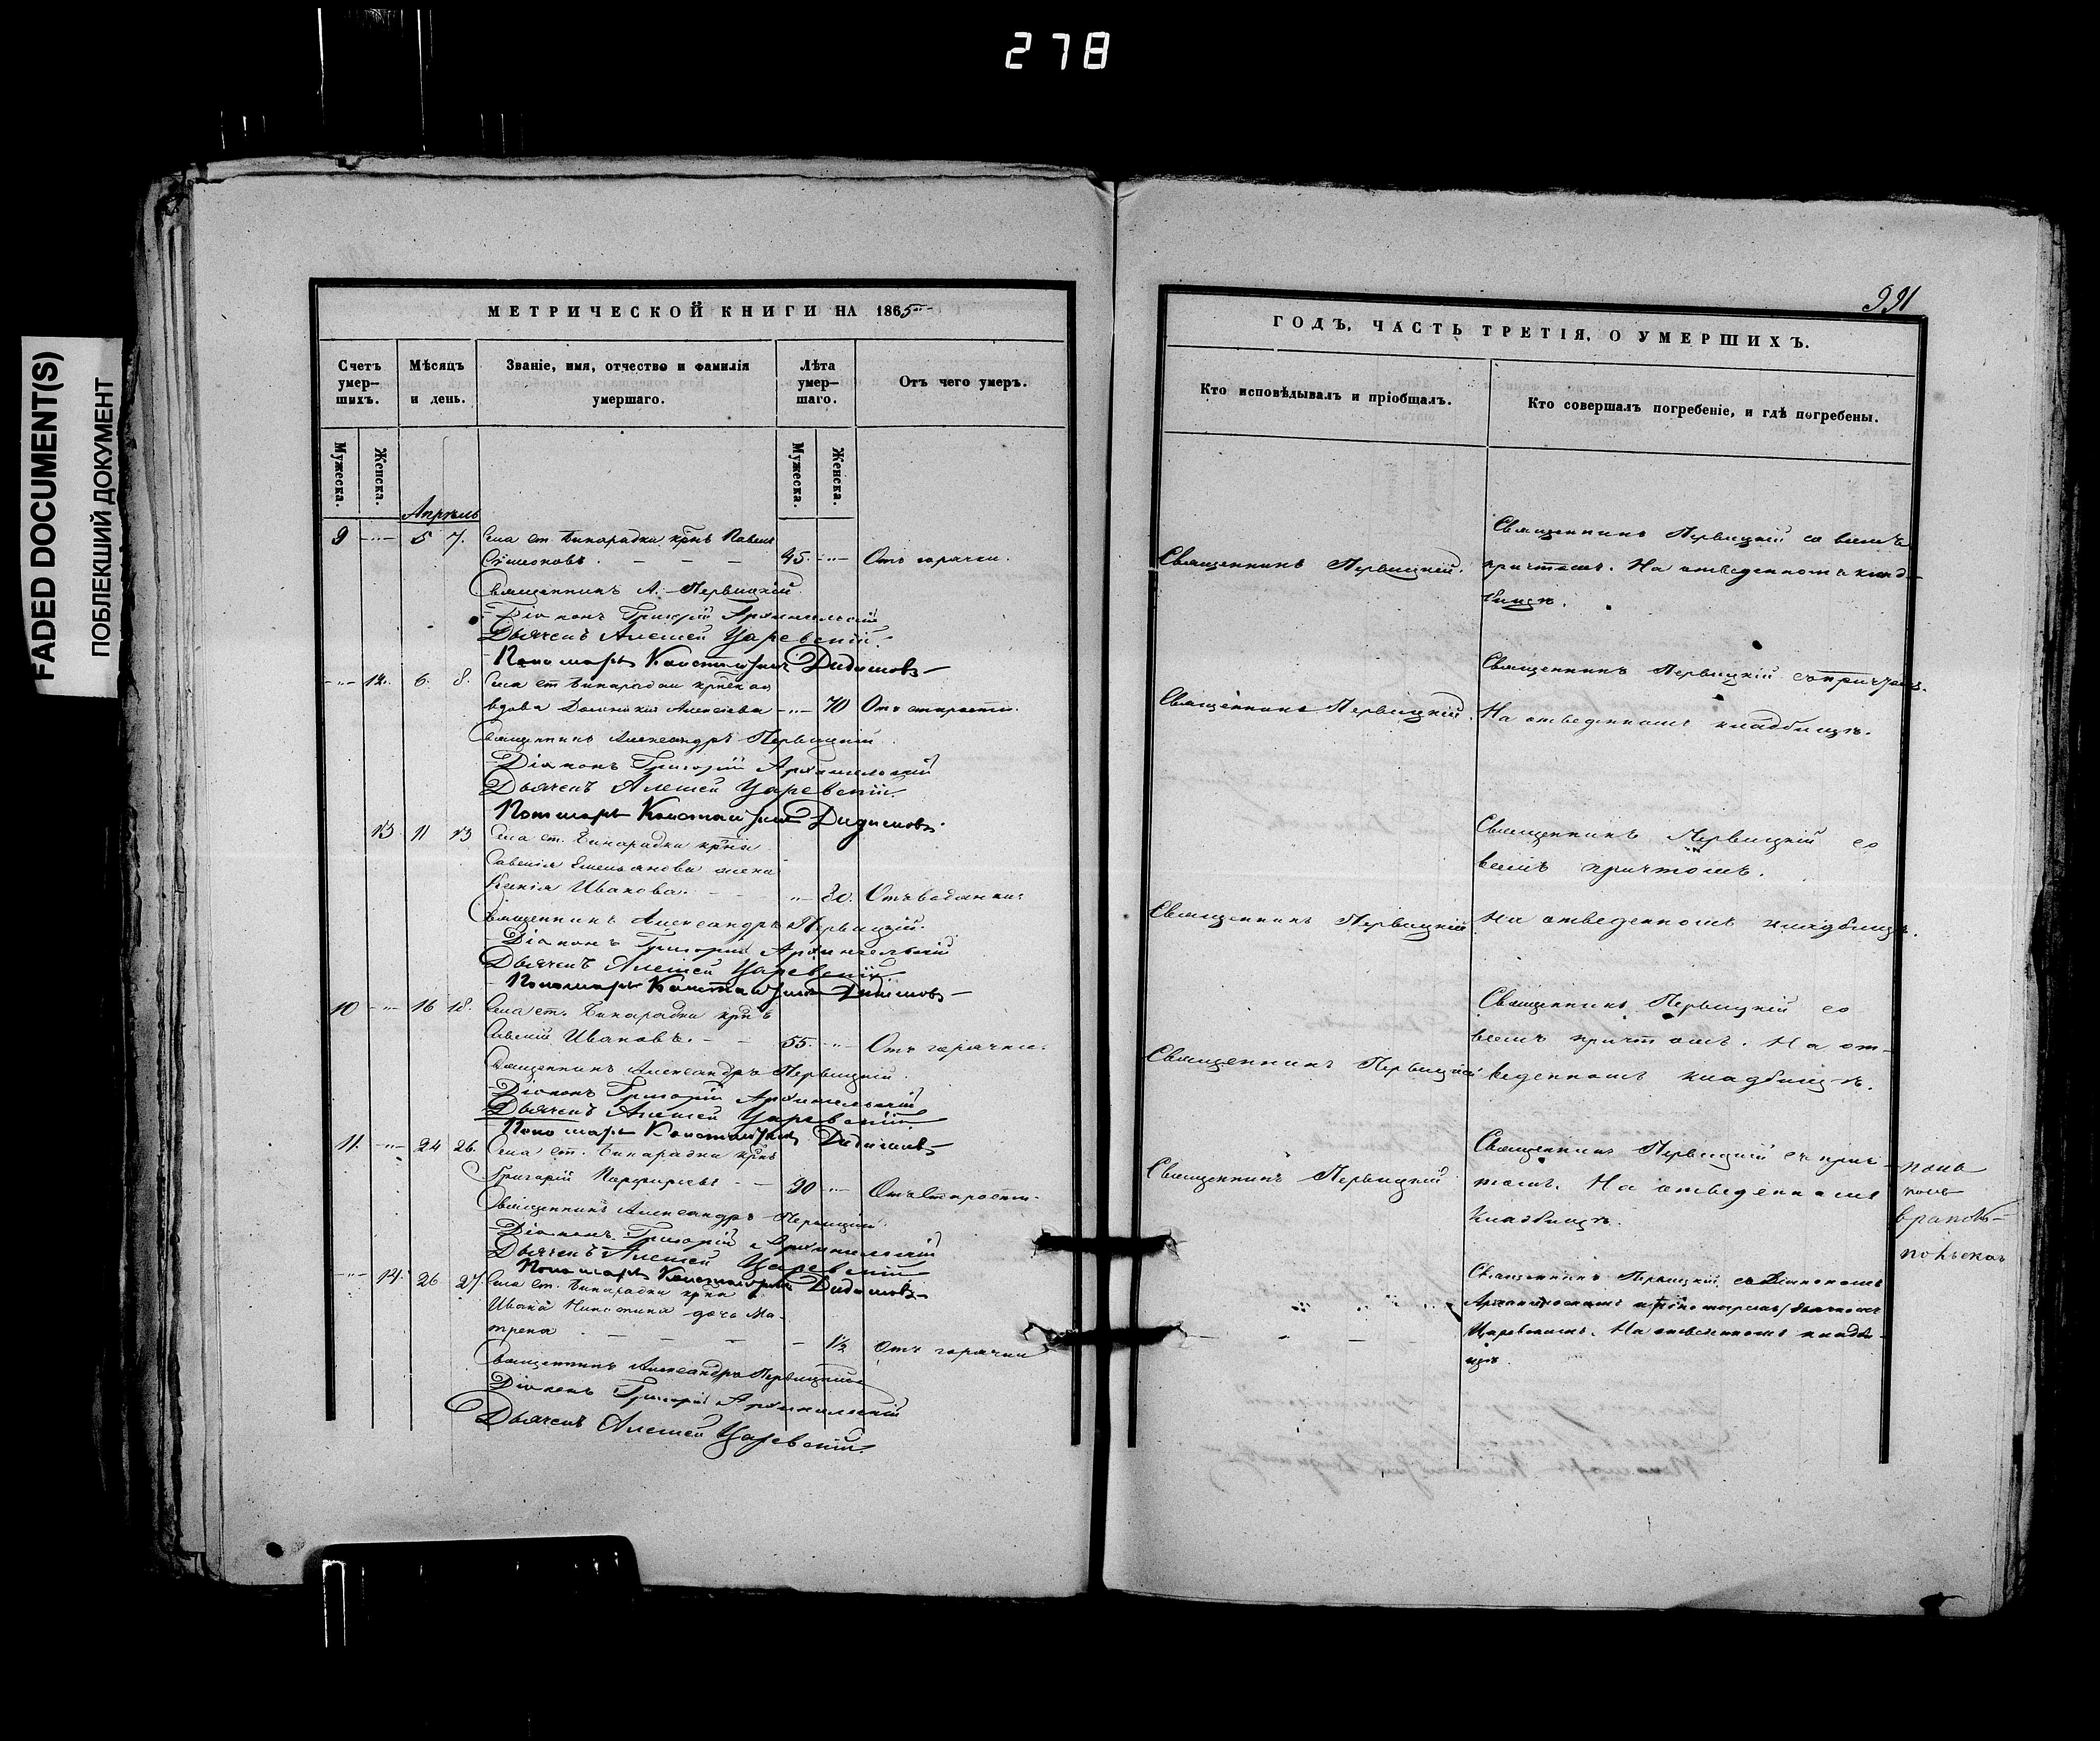 278
FADED DOCUMENT(S)
ПОБЛЕКШИЙ ДОКУМЕНТ
МЕТРИЧЕСКОЙ КНИГИ НА 1865
Счетъ умер-
шихъ.
Мѣсяцъ
и день.
Званіе, имя, отчество и фамилія
умершаго.
Лѣта
умер-
шаго.
Отъ чего умеръ.
Мужеска.
Женска.
Мужеска.
Женска.
Апрѣль
9 5 7. Села ст. Бинарадки крнъ Павелъ
Симеоновъ. 45. Отъ горячки.
Священникъ А. Первицкій
Діаконъ Григорій Архангельскій
Дьячекъ Алексей Царевскій
Пономарь Константинъ Дидимовъ
12. 6. 8. Села ст. Бинарадки
вдова Алексіева 70 Отъ старости.
Священникъ Александръ Первицкій
Діаконъ Григорій Архангельскій
Дьячекъ Алексей Царевскій
Пономарь Константинъ Дидимовъ
13 11 13 Села ст. Бинарадки крна
Савелія Емельянова жена
Ксенія Иванова. 30.
Священникъ Александръ Первицкій
Діаконъ Григорій Архангельскій
Дьячекъ Алексей Царевскій
Пономарь Константинъ Дидимовъ
10 16 18. Села ст. Бинарадки крнъ
Ивановъ. 55. Отъ горячки.
Священникъ Александръ Первицкій
Діаконъ Григорій Архангельскій
Дьячекъ Алексей Царевскій
Пономарь Константинъ Дидимовъ
11. 24 26. Села ст. Бинарадки крнъ
Григорій Порфирьевъ 90 Отъ старости.
Священникъ Александръ Первицкій
Діаконъ Григорій Архангельскій
Дьячекъ Алексей Царевскій
Пономарь Константинъ Дидимовъ
14. 26 27. Села ст. Бинарадки крна
Ивана Никитина дочь Ма-
трена 1½ Отъ горячки
Священникъ Александръ Первицкій
Діаконъ Григорій Архангельскій
Дьячекъ Алексей Царевскій
991
ГОДЪ, ЧАСТЬ ТРЕТІЯ, О УМЕРШИХЪ.
Кто исповѣдывалъ и пріобщалъ.
Кто совершалъ погребеніе, и гдѣ погребены.
Священникъ Первицкій.
Священникъ Первицкій со всемъ
причтомъ. На отведенномъ клад-
бищѣ.
Священникъ Первицкій.
Священникъ Первицкій съ причтомъ.
На отведенномъ кладбищѣ.
Священникъ Первицкій
Священникъ Первицкій со
всемъ причтомъ.
На отведенномъ кладбищѣ.
Священникъ Первицкій
Священникъ Первицкій со
всемъ причтомъ. На от-
веденномъ кладбищѣ.
Священникъ Первицкій
Священникъ Первицкій съ прич-
томъ. На отведенномъ
кладбищѣ.
Священникъ Первицкій съ Діакономъ
Архангельскимъ и
Царевскимъ. На отведенномъ кладби-
щѣ.